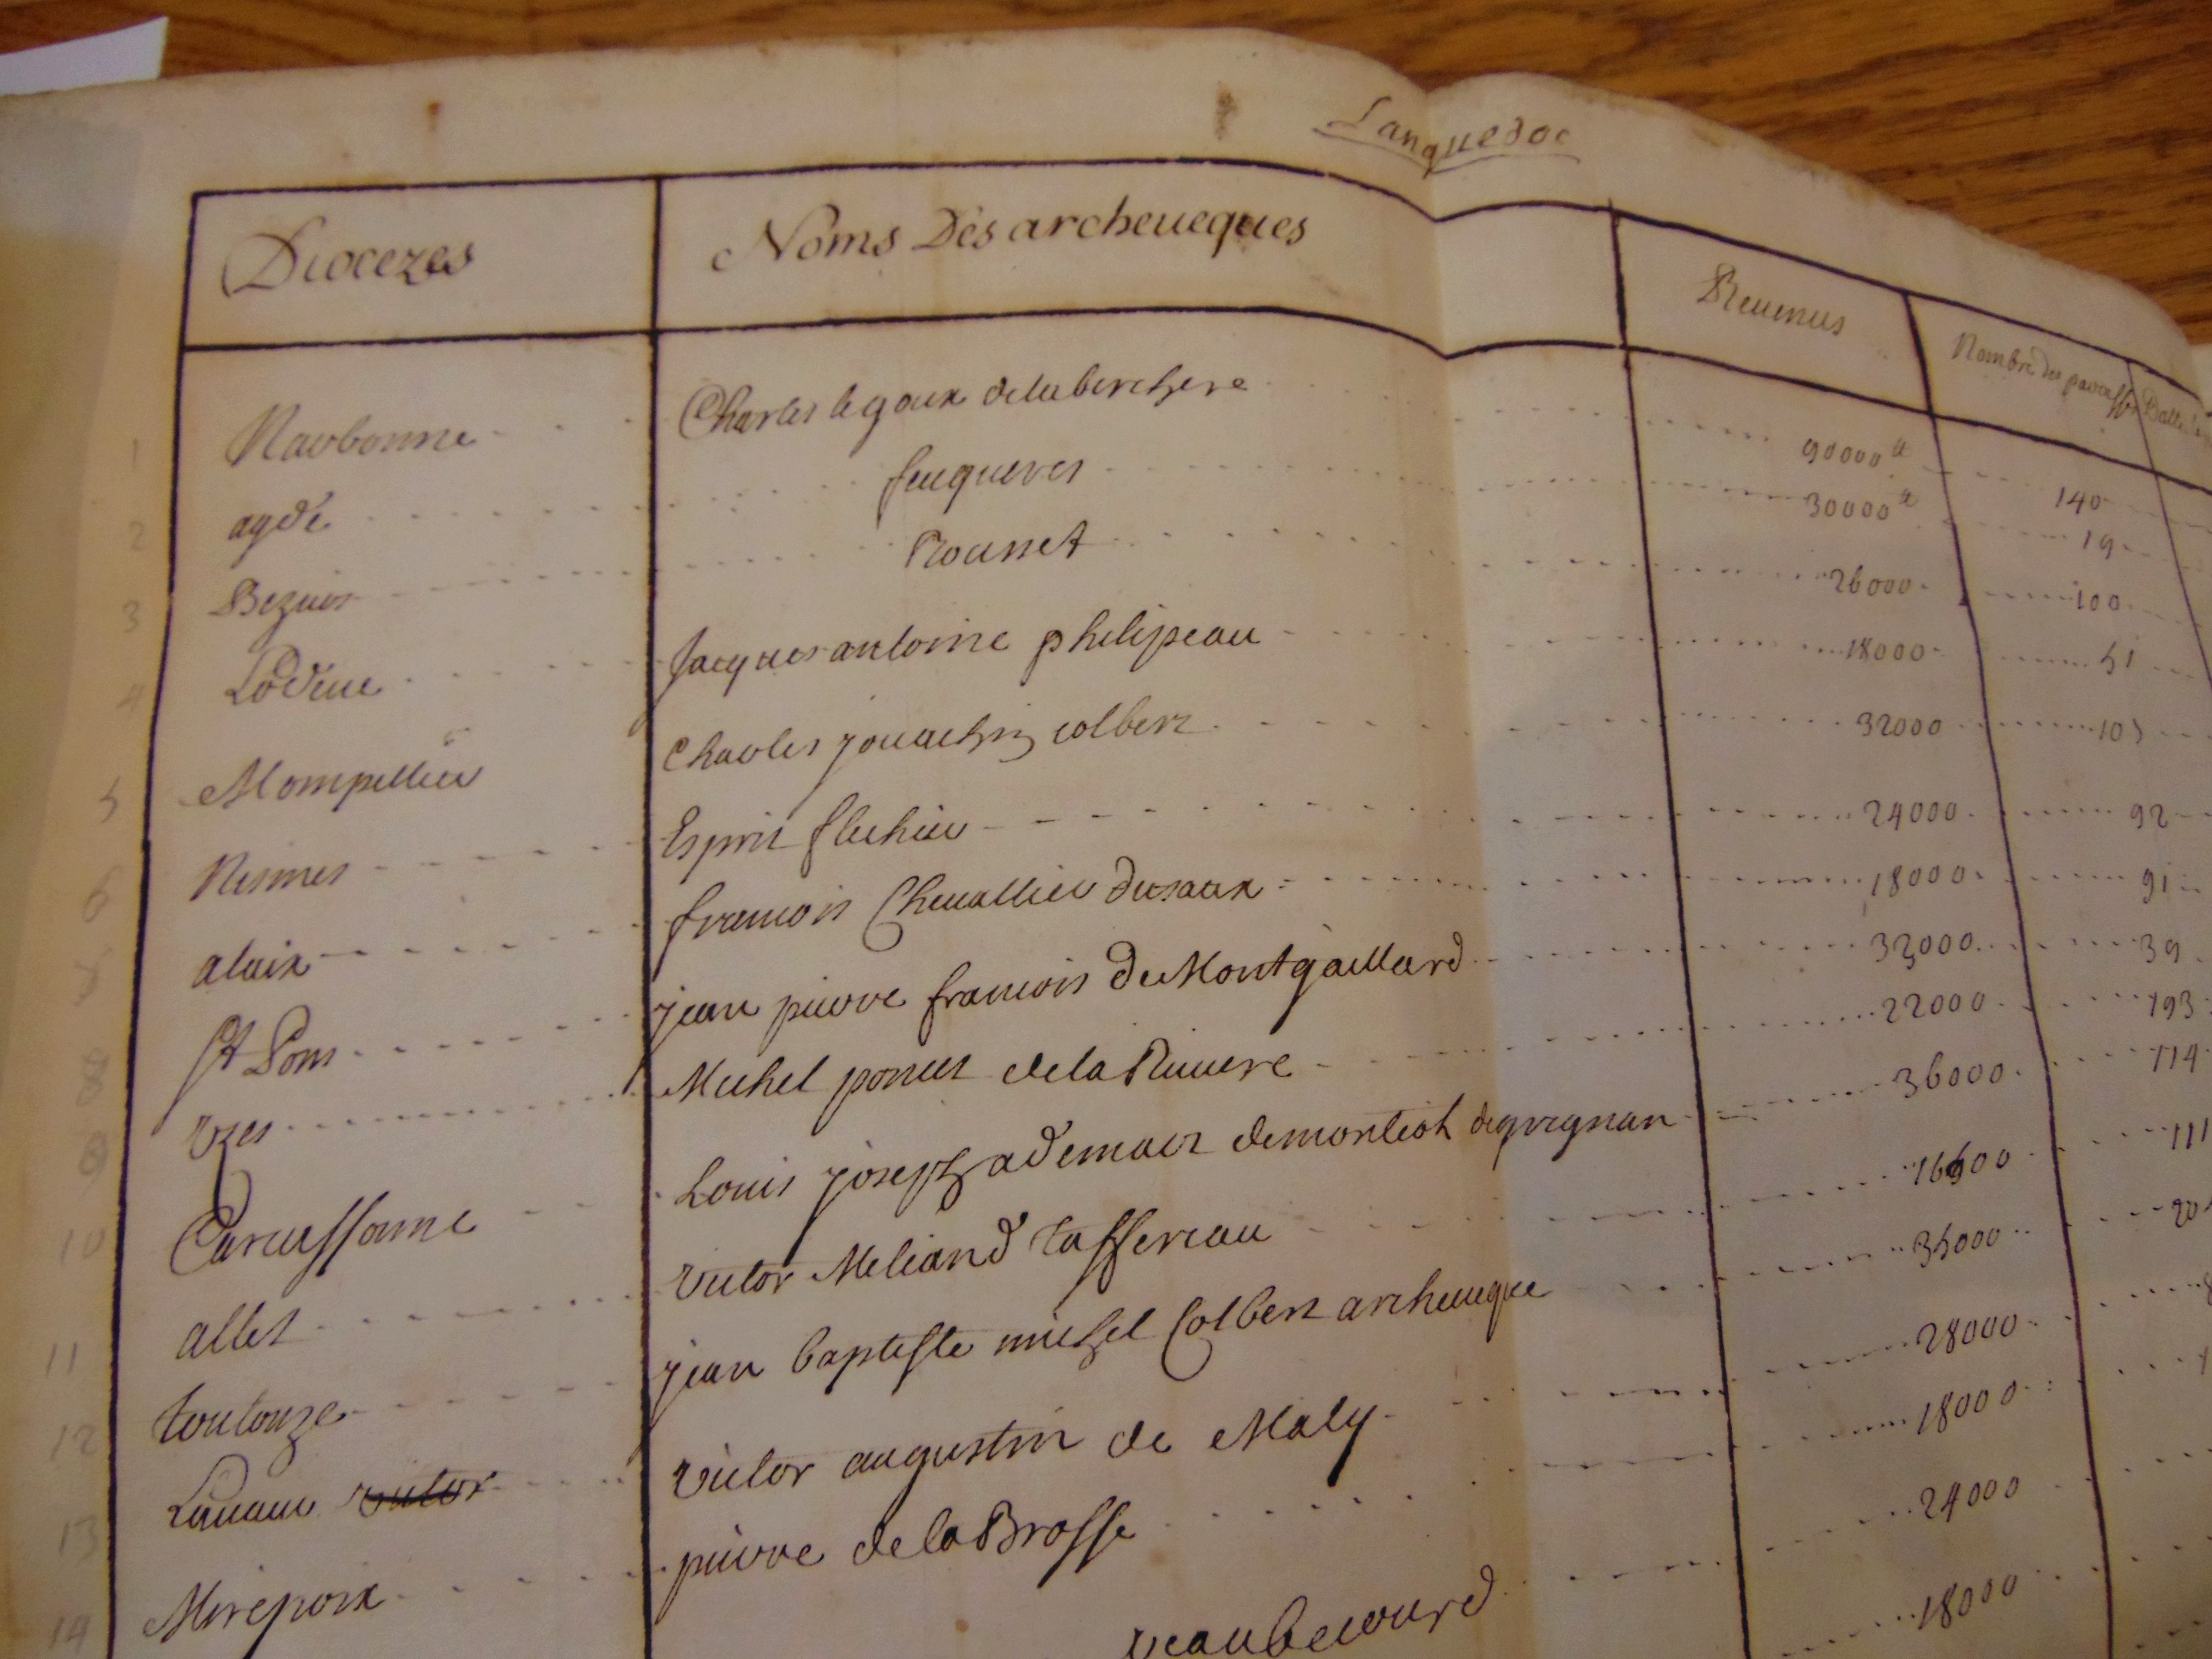 Languedoc
Diocezes Noms Des archeueques Reuenus Nombre des paroisses
1 Narbonne Charles legoux delaberchere 90000 140
2 agde feuqueres 30000 19
3 Beziers Rousset 26000 100
4 Lodeue Jacques antoine philipeau 18000 51
5 Mompellier Charles jouachin colbert 32000 103
6 Nismes Esprit flechier 24000 92
7 alaix francois Cheuallier dusaux 18000 91
8 St Pons jean pierre francois de Montgaillard 33000 39
9 Vzes Michel poncet dela Riuiere 22000 193
10 Carcassonne Louis joseph ademair demonteil degrignan 36000 114
11 allet Victor Meliand taffereau 16000 111
12 toulouze jean baptiste michel Colbert archeueque 35000
13 Lauaur victor Victor augustin de Maly 28000
14 Mirepoix pierre dela Brosse 18000
24000
18000